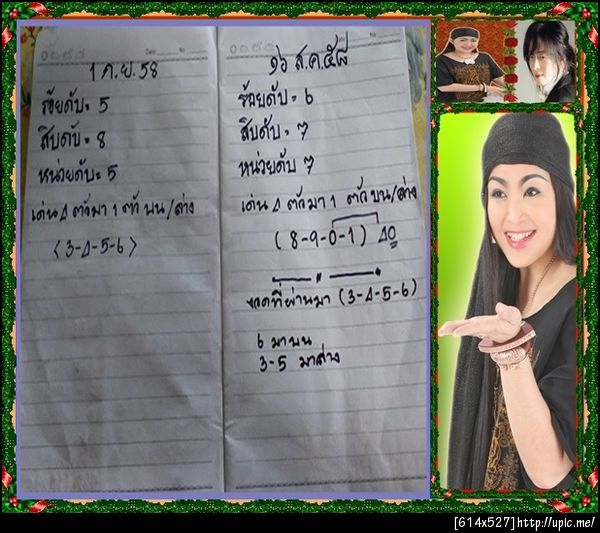 1 ก.ย. 58
ร้อยดับ = 5
สิบดับ = 8
หน่วยดับ = 5
เด่น 4 ตัวมา 1 ตัว บน/ล่าง
(3-4-5-6)
๑๖ ส.ค.๕๘
ร้อยดับ = 6
สิบดับ = 7
หน่วยดับ 7
เด่น 4 ตัวมา 1 ตัว บน/ล่าง
(8-9-0-1) 40
งวดที่ผ่านมา (3-4-5-6)
6 มาบน
3-5 มาล่าง
[614x527]http://upic.me/